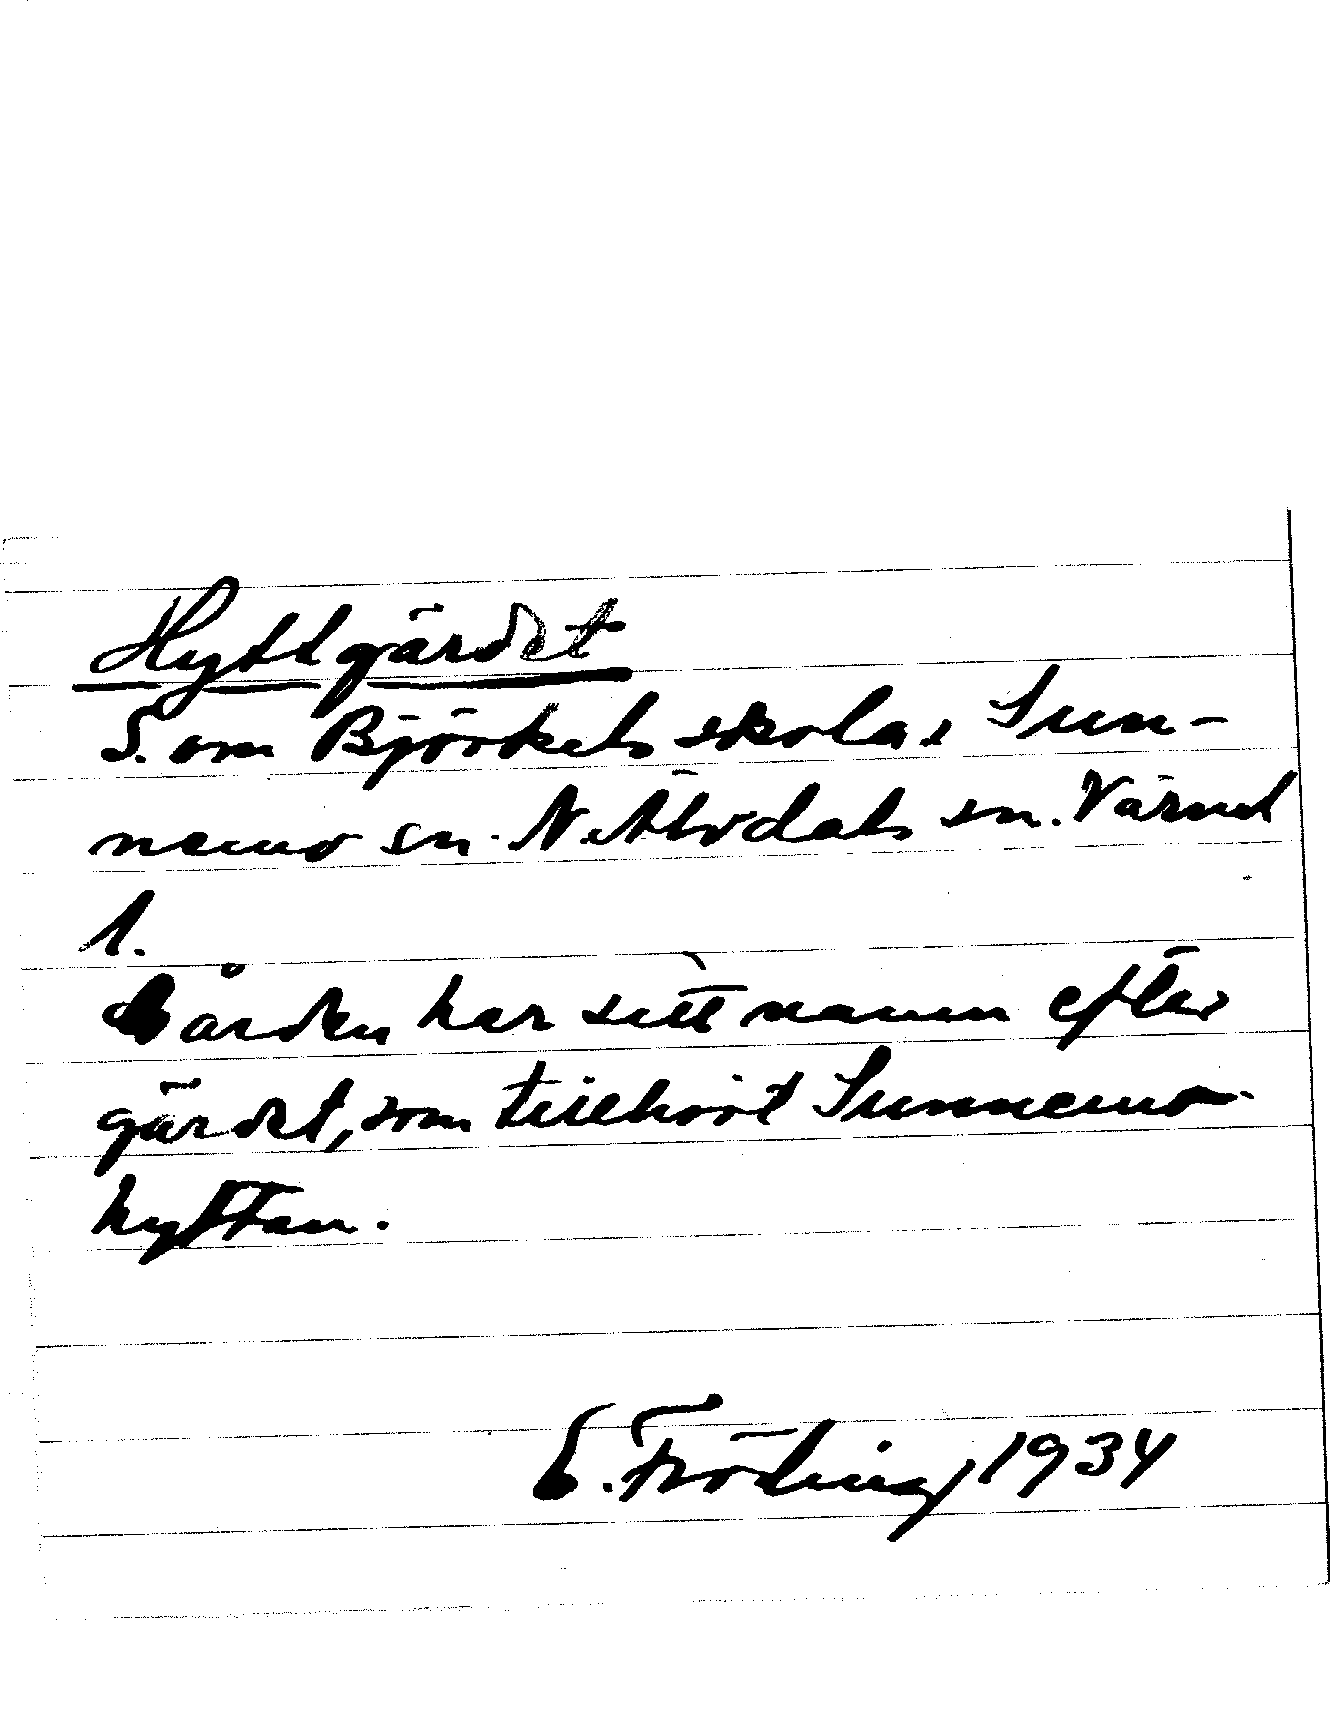 Hyttgärdet
S. om Björkets skola, Sun-
nemo sn. N. Älvdals sn. Värml
1.
Gården har sitt namn efter
gärdet, som tillhört Sunnemo-
hyttan.
E. Fröding 1934